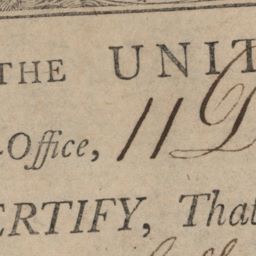 THE UNIT
-Office, 11 D
ERTIFY, That